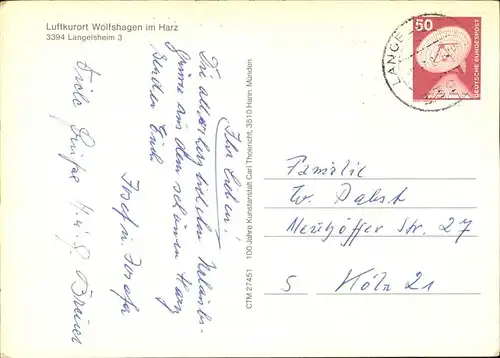 Luftkurort Wolfshagen im Harz
3394 Langelsheim 3
Ihr Lieben!
Die allerherzlichsten Urlaubs-
grüsse aus dem schönen Harz
senden Euch
Josef u.
Viele Grüße H. u. G.
CTM 27451 100 Jahre Kunstanstalt Carl Thoericht, 3510 Hann. Münden
LANGE
50
DEUTSCHE BUNDESPOST
Familie
W. Pabst
Neuhöffer Str. 27
5 Köln 21